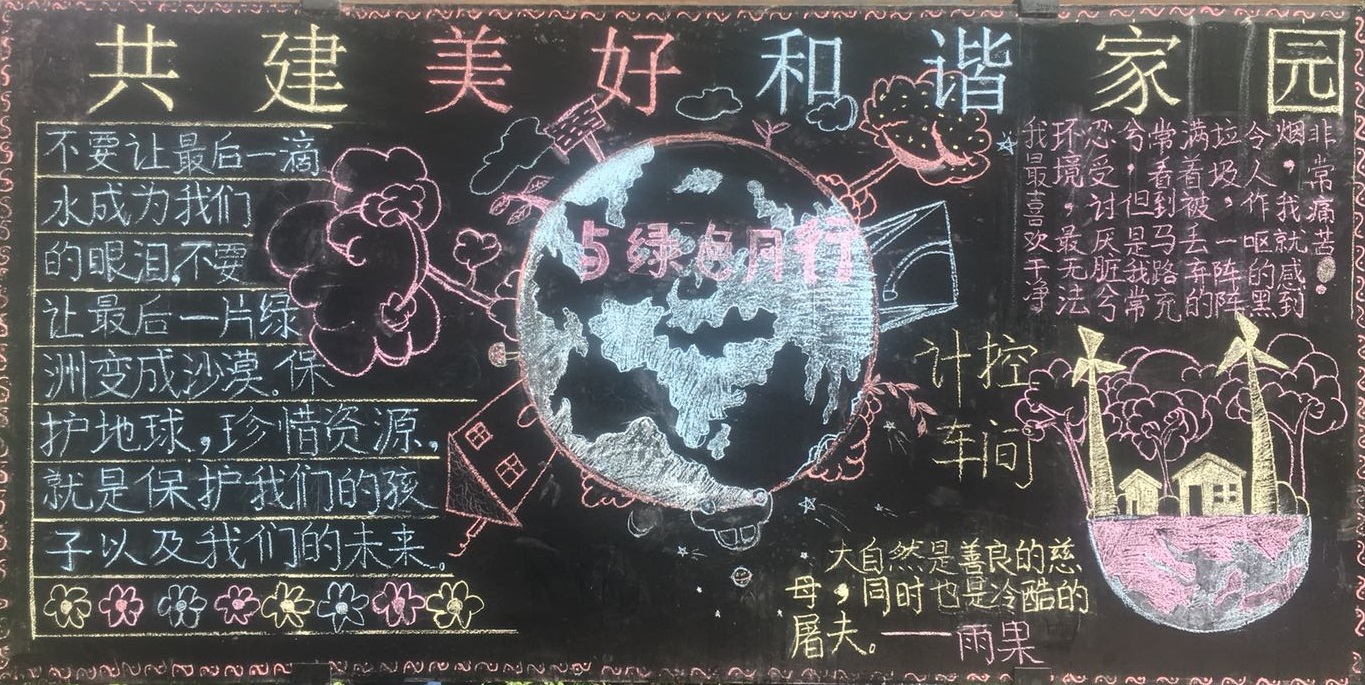 共建美好和谐家园
不要让最后一滴
水成为我们
的眼泪。不要
让最后一片绿
洲变成沙漠。保
护地球，珍惜资源，
就是保护我们的孩
子以及我们的未来。
与绿色同行
我最喜欢干净
环境，最无法
忍受讨厌脏兮
兮，但是我常
常看到马路充
满着被丢弃的
垃圾，一阵阵
令人作呕的黑
烟，我就感到
非常痛苦。
计控
车间
大自然是善良的慈
母，同时也是冷酷的
屠夫。——雨果